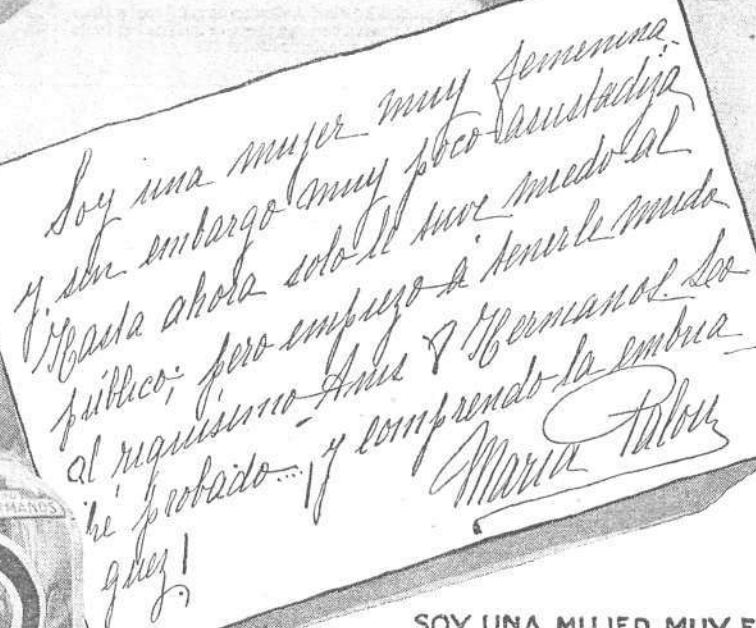 Soy una mujer muy femenina
y sin embargo muy poco asustadiza
Hasta ahora solo le tuve miedo al
público; pero empiezo á tenerle miedo
al riquísimo Anis 8 Hermanos. Leo
hé probado... ¡y comprendo la embria
guez!
María Palou
MANOS
SOY UNA MUJER MUY F